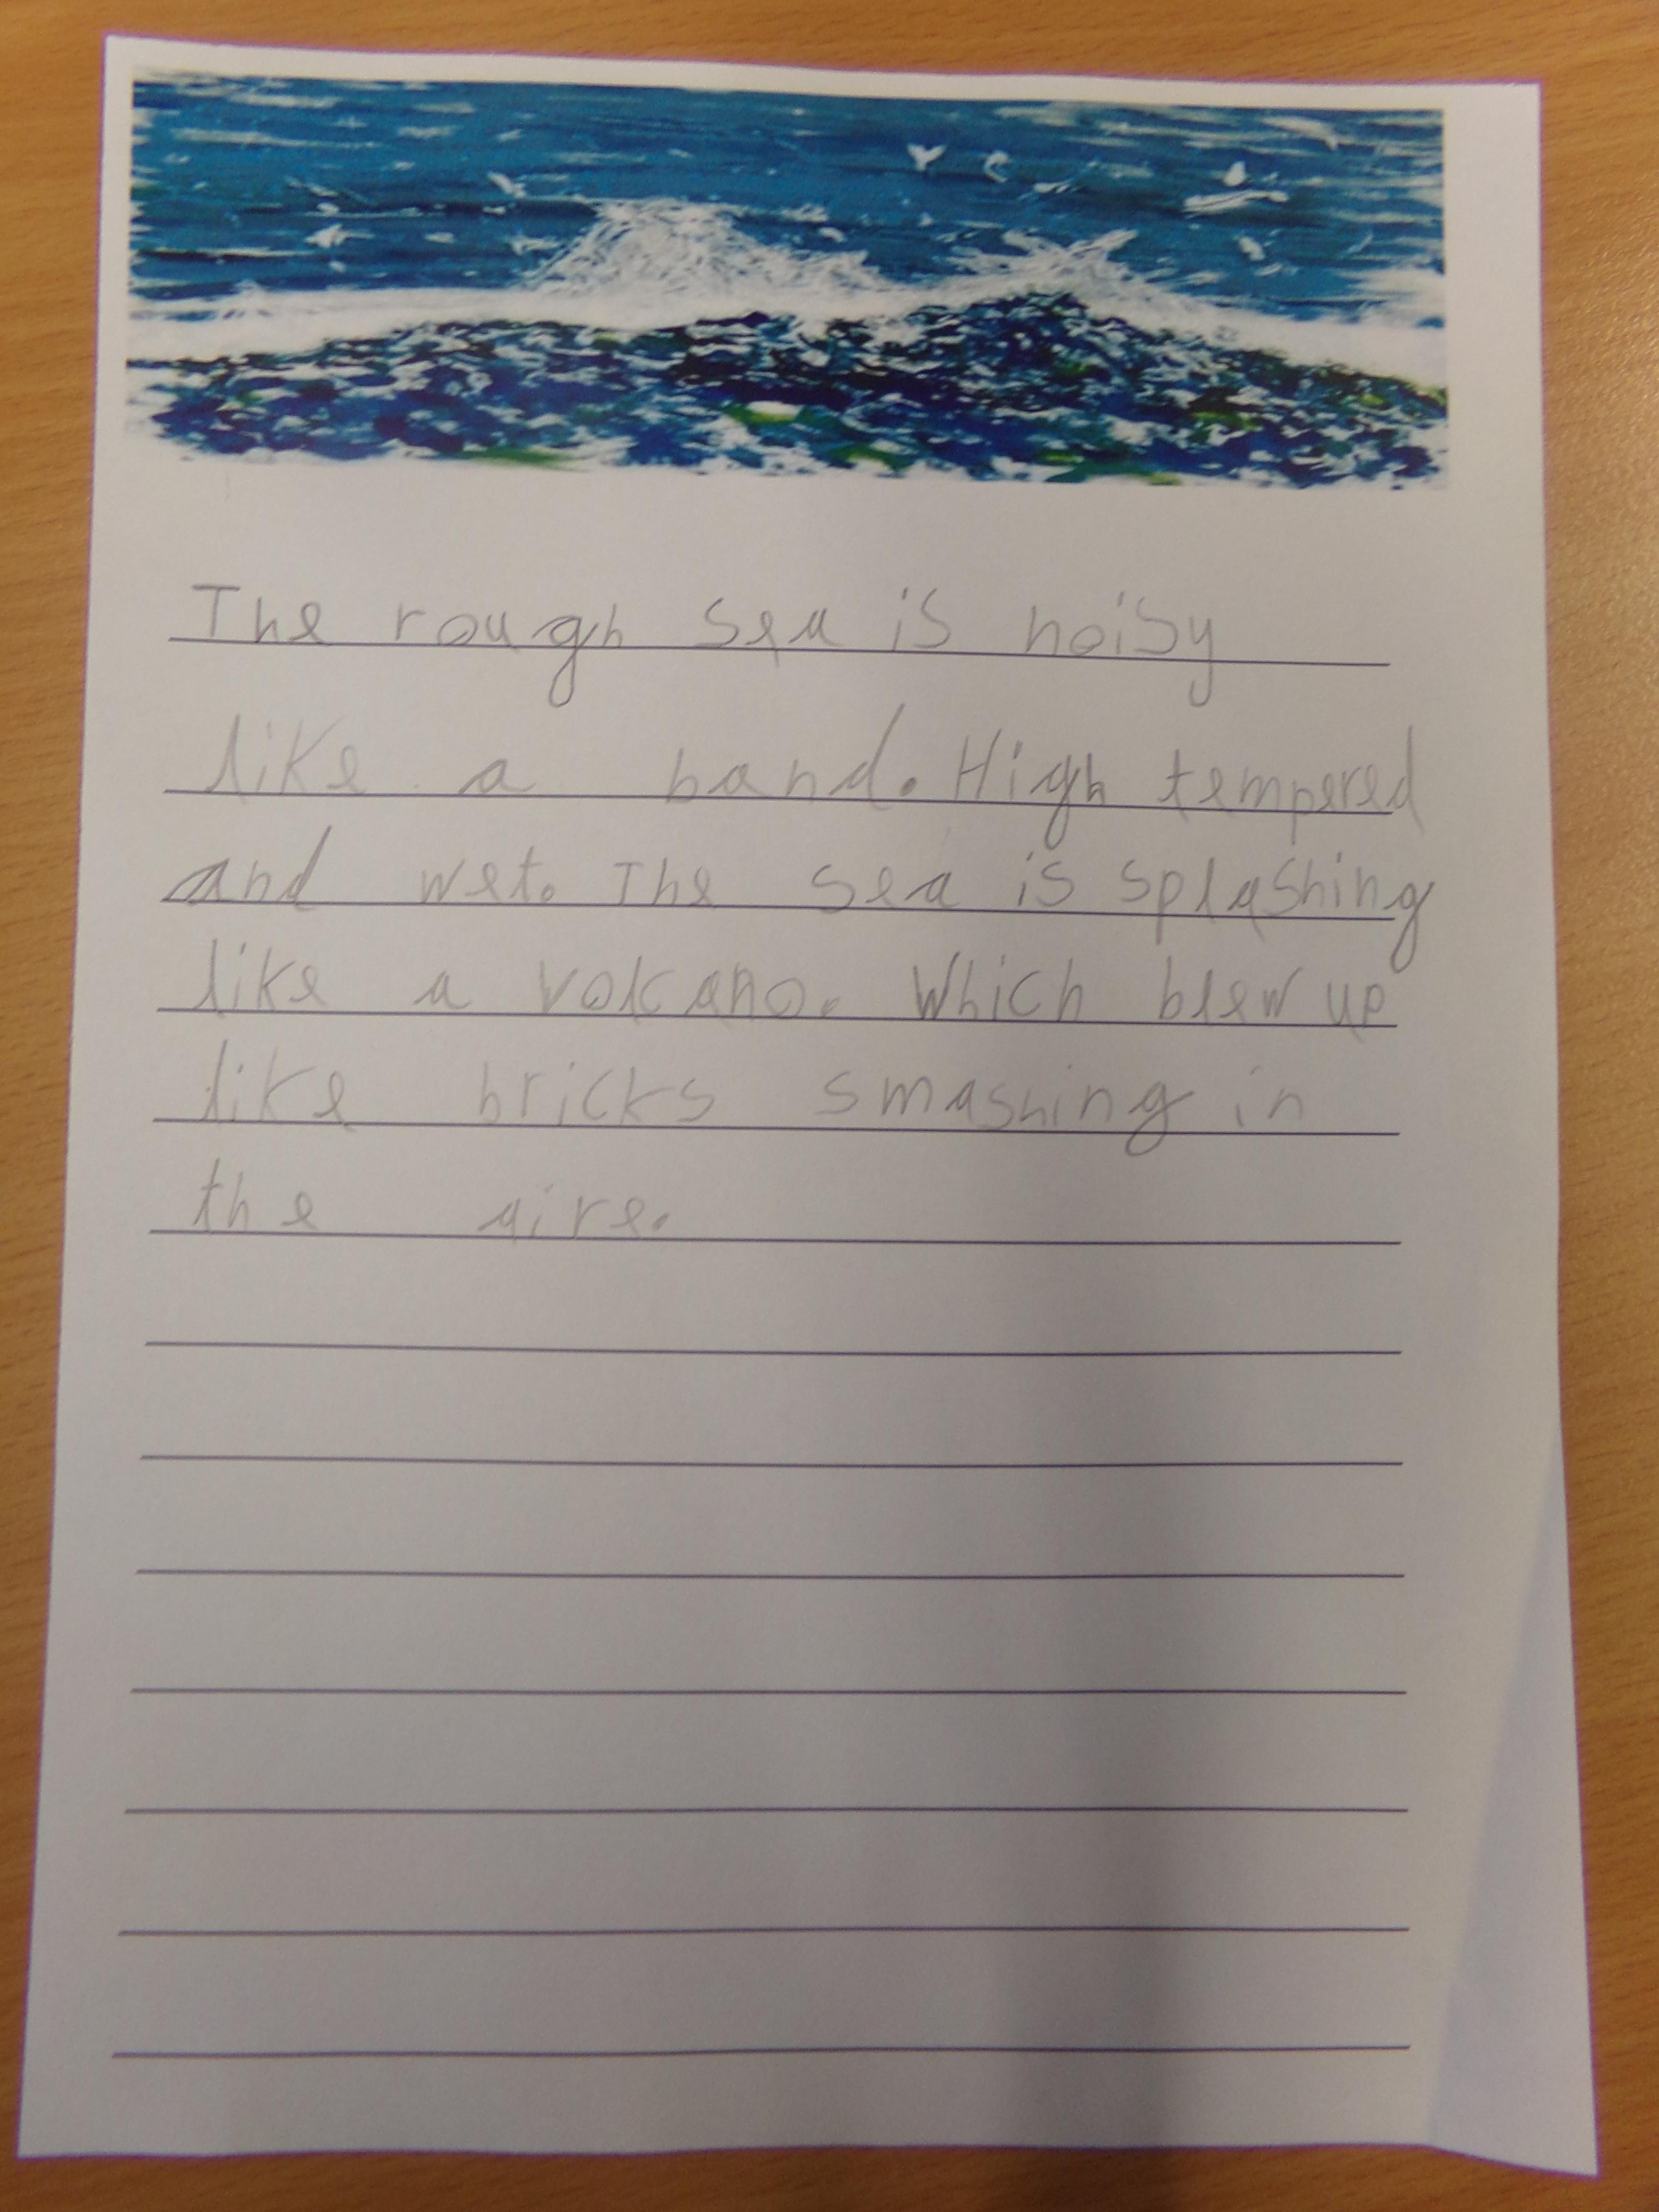 The rough sea is noisy
like a band. High tempered
and wet. The sea is splashing
like a volcano. Which blew up
like bricks smashing in
the aire.